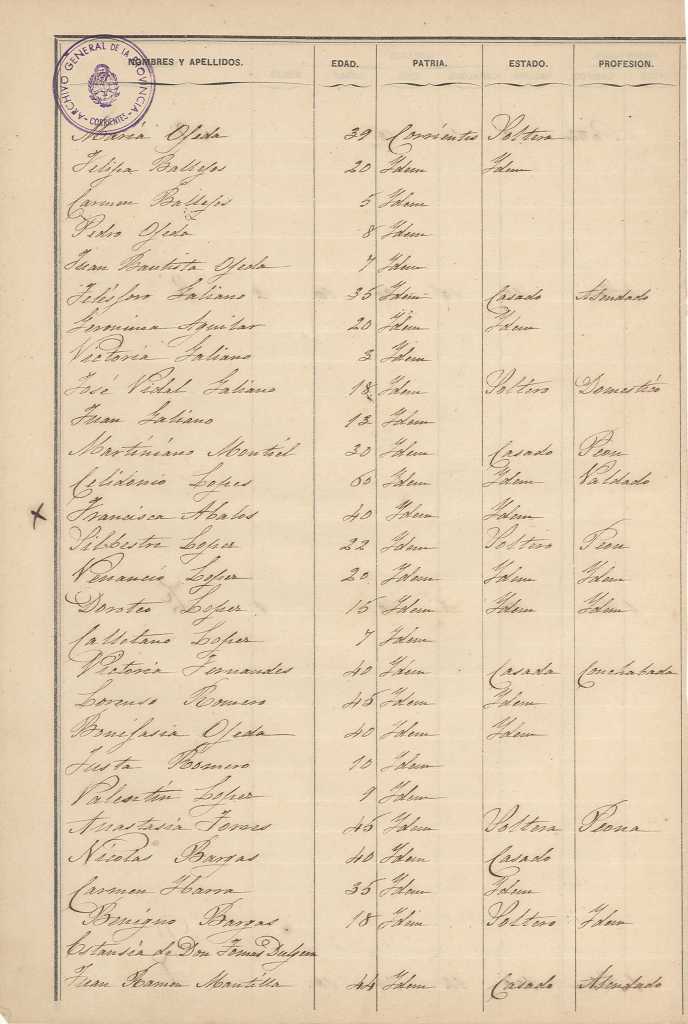 ARCHIVO GENERAL DE LA PROVINCIA - CORRIENTES -
NOMBRES Y APELLIDOS. EDAD. PATRIA. ESTADO. PROFESION.
Maria Ojeda 39 Corrientes Soltera
Felipa Ballejos 20 Ydem Ydem
Carmen Ballejos 5 Ydem
Pedro Ojeda 8 Ydem
Juan Bautista Ojeda 7 Ydem
Telésforo Galiano 35 Ydem Casado Asendado
Geronima Aguilar 20 Ydem Ydem
Victoria Galiano 3 Ydem
José Vidal Galiano 18 Ydem Soltero Domestico
Juan Galiano 13 Ydem
Martiniano Montiel 30 Ydem Casado Peon
Celidonio Lopes 60 Ydem Ydem Valdado
x Francisca Abalos 40 Ydem Ydem
Silbestre Lopez 22 Ydem Soltero Peon
Venancio Lopez 20 Ydem Ydem Ydem
Doroteo Lopez 15 Ydem Ydem Ydem
Calletano Lopez 7 Ydem
Victoria Fernandes 40 Ydem Casada Conchabada
Lorenso Romero 45 Ydem Ydem
Bonifasia Ojeda 40 Ydem Ydem
Justa Romero 10 Ydem
Valentín Lopez 9 Ydem
Anastasia 45 Ydem Soltera Peona
Nicolas Bargas 40 Ydem Casado
Carmen Ybarra 35 Ydem Ydem
Benigno Bargas 18 Ydem Soltero Ydem
Estansia de Don Tomas
Juan Ramon Mantilla 44 Ydem Casado Asendado